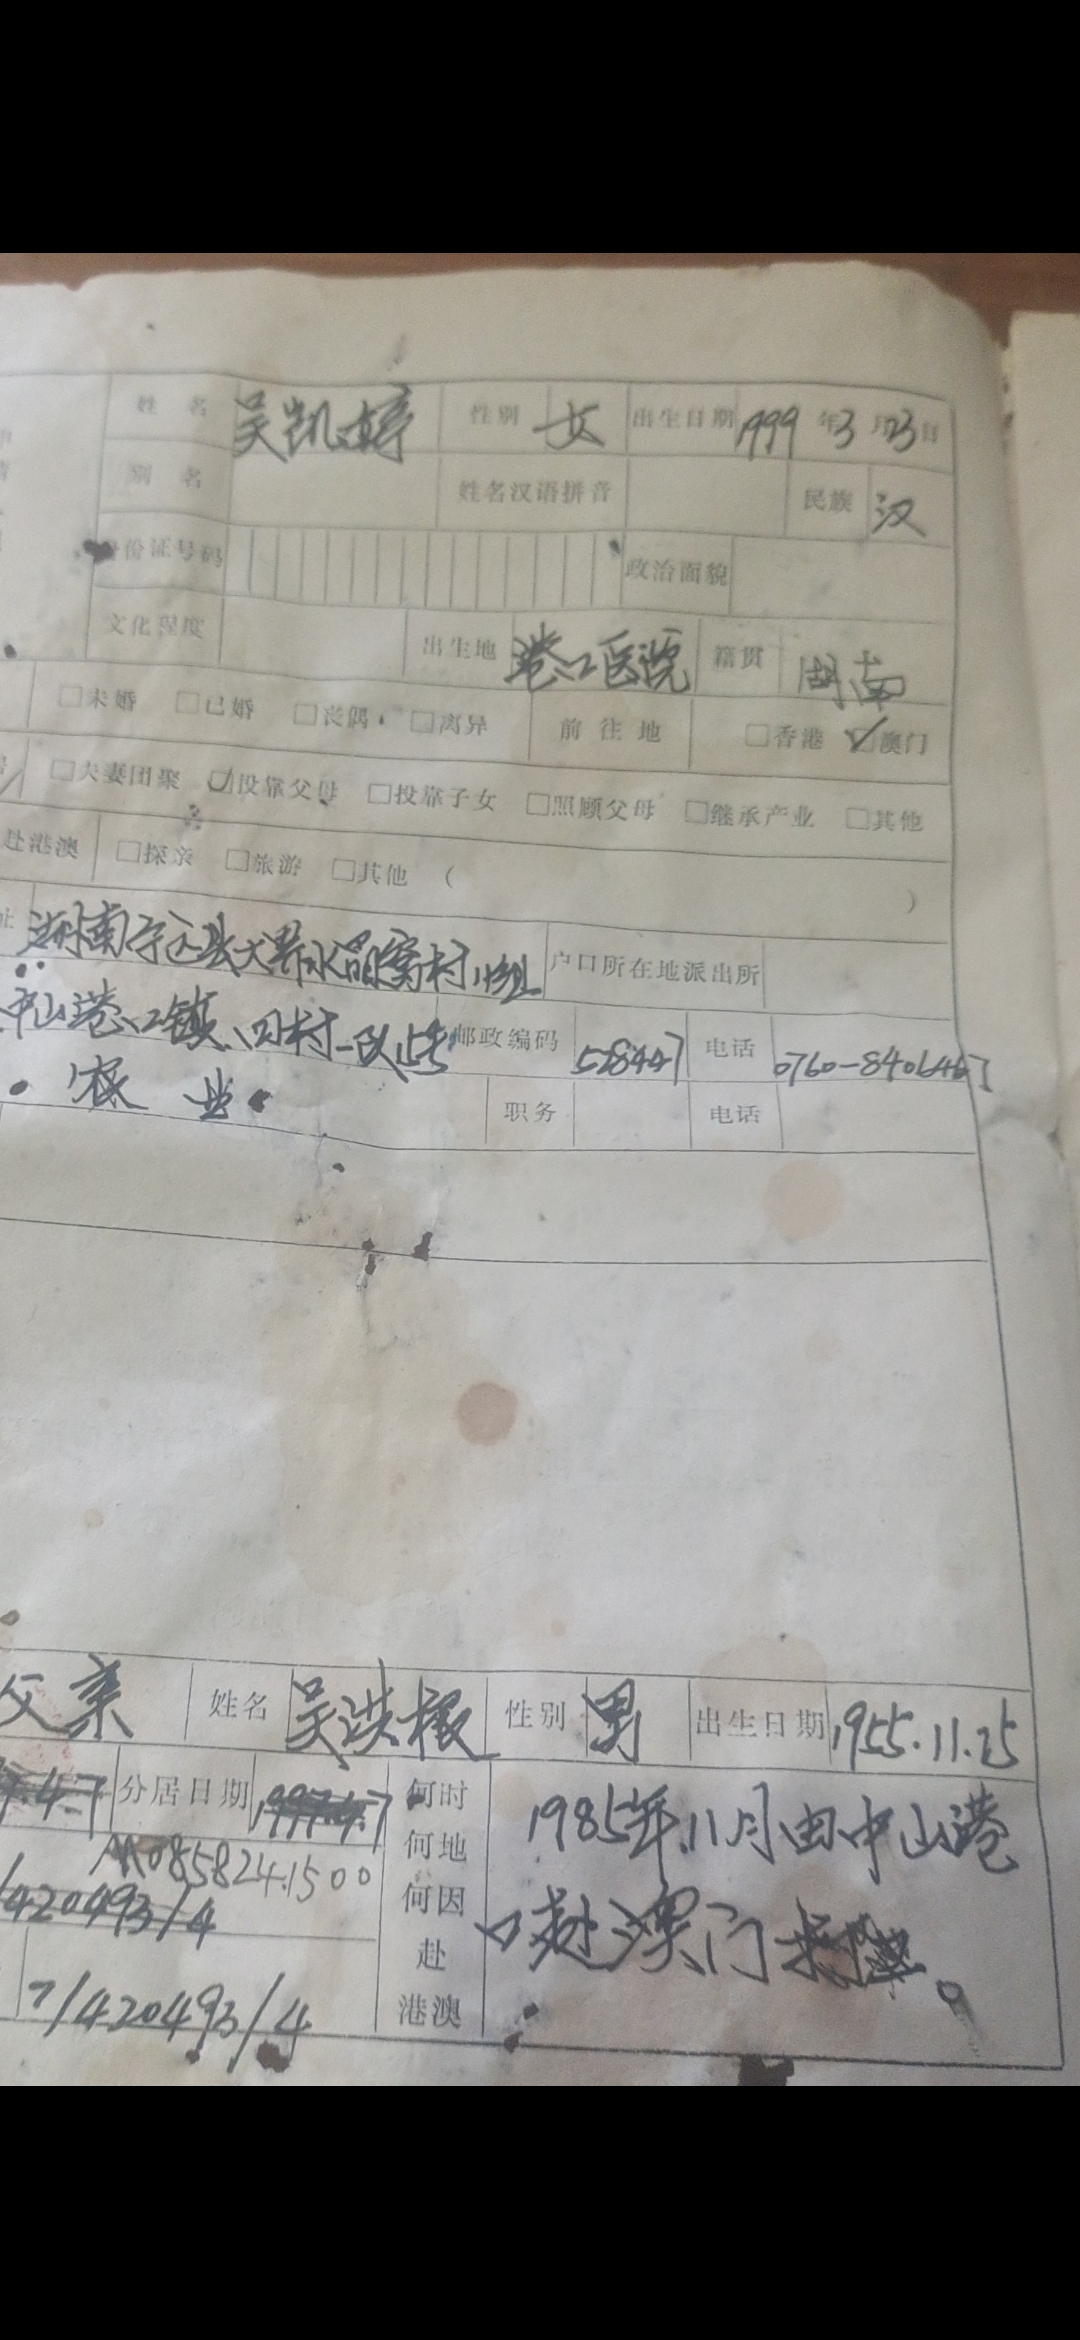 姓名 吴凯婷 性别 女 出生日期 1999年3月23日
别名 姓名汉语拼音 民族 汉
身份证号码 政治面貌
文化程度 出生地 港口医院 籍贯 湖南
□未婚 □已婚 □丧偶 □离异 前往地 □香港 ☑澳门
□夫妻团聚 ☑投靠父母 □投靠子女 □照顾父母 □继承产业 □其他
赴港澳 □探亲 □旅游 □其他 ( )
址 湖南宁远县大界水 村 组 户口所在地派出所
中山港口镇 四村一队 邮政编码 528447 电话 0760-8406467
农业 职务 电话
父亲 姓名 吴洪根 性别 男 出生日期 1955.11.25
分居日期 何时何地何因赴港澳 1985年.11月由中山港
口赴澳门
M085824.1500
/420493/4
7/420493/4